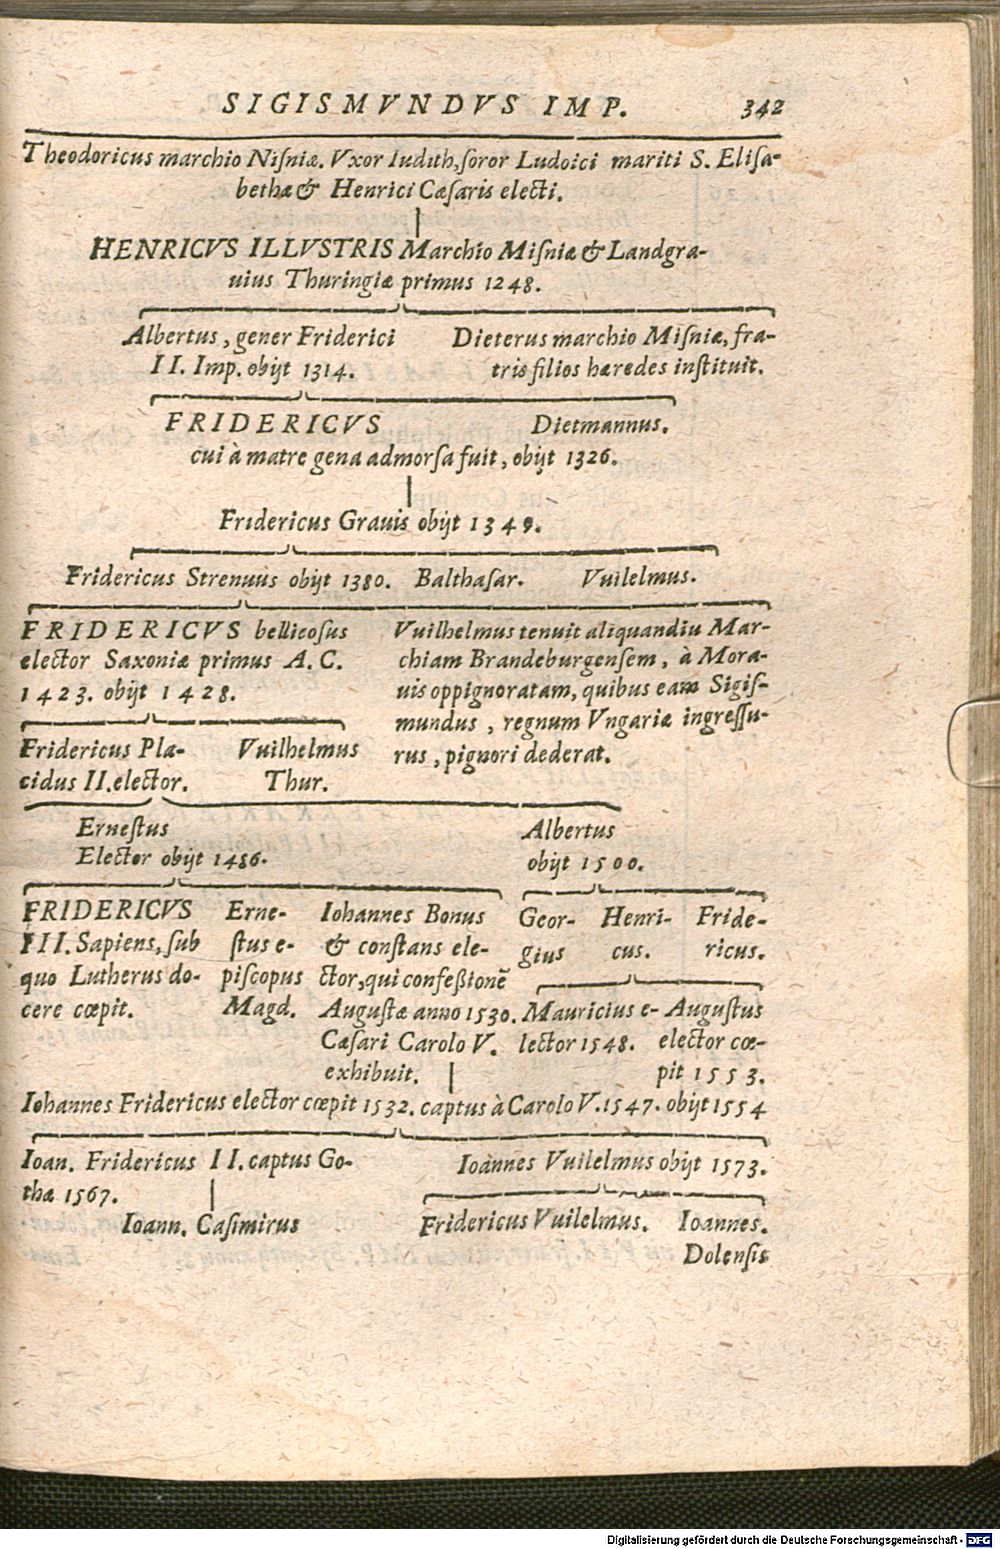 SIGISMVNDVS IMP. 342
Theodoricus marchio Niſniæ. Vxor Iudith, ſoror Ludoici mariti S. Eliſa-
bethæ & Henrici Cæſaris electi.
HENRICVS ILLVSTRIS Marchio Miſniæ & Landgra-
uius Thuringiæ primus 1248.
Albertus, gener Friderici
II. Imp. obijt 1314.
Dieterus marchio Miſniæ, fra-
tris filios hæredes inſtituit.
FRIDERICVS Dietmannus.
cui à matre gena admorſa fuit, obijt 1326.
Fridericus Grauis obijt 1349.
Fridericus Strenuus obijt 1380. Balthaſar. Vuilelmus.
FRIDERICVS bellicoſus
elector Saxoniæ primus A. C.
1423. obijt 1428.
Vuilhelmus tenuit aliquandiu Mar-
chiam Brandeburgenſem, à Mora-
uis oppignoratam, quibus eam Sigiſ-
mundus, regnum Vngariæ ingreſſu-
rus, pignori dederat.
Fridericus Pla-
cidus II. elector.
Vuilhelmus
Thur.
Erneſtus
Elector obijt 1486.
Albertus
obijt 1500.
FRIDERICVS
III. Sapiens, ſub
quo Lutherus do-
cere cœpit.
Erne-
ſtus e-
piſcopus
Magd.
Iohannes Bonus
& conſtans ele-
ctor, qui confeßionē
Auguſtæ anno 1530.
Cæſari Carolo V.
exhibuit.
Geor-
gius
Henri-
cus.
Fride-
ricus.
Mauricius e-
lector 1548.
Auguſtus
elector cœ-
pit 1553.
Iohannes Fridericus elector cœpit 1532. captus à Carolo V. 1547. obijt 1554
Ioan. Fridericus II. captus Go-
thæ 1567.
Ioannes Vuilelmus obijt 1573.
Ioann. Caſimirus
Fridericus Vuilelmus. Ioannes.
Dolenſis
Digitalisierung gefördert durch die Deutsche Forschungsgemeinschaft - DFG